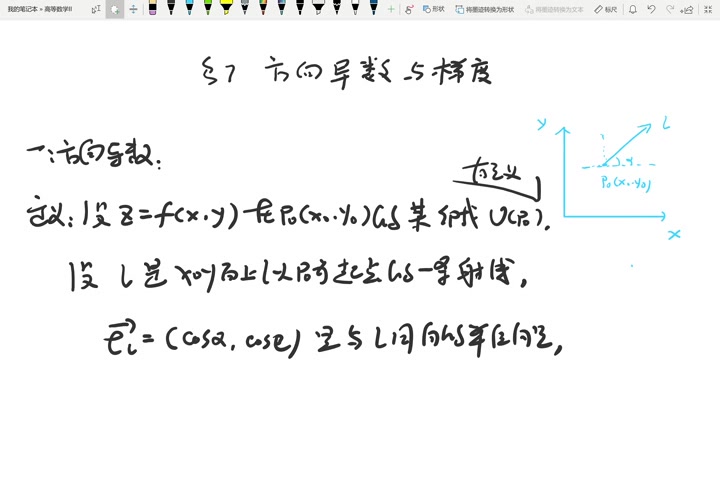 我的笔记本 » 高等数学II
形状
将墨迹转换为形状
将墨迹转换为文本
标尺
§7 方向导数与梯度
一:方向导数:
有定义
定义:设 z=f(x,y)在P₀(x₀,y₀)的某邻域U(P₀),
设 l 是 xoy面上以P₀为起点的一条射线,
e⃗ₗ=(cosα, cosβ) 是与l同向的单位向量,
y
l
α
P₀(x₀,y₀)
x